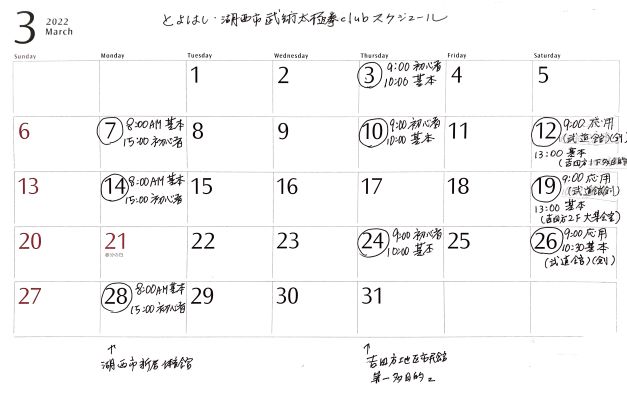 3 2022 March
とよはし・湖西市武術太極拳clubスケジュール
Sunday Monday Tuesday Wednesday Thursday Friday Saturday
1 2 3 4 5
9:00 初心者
10:00 基本
6 7 8 9 10 11 12
8:00AM 基本
15:00 初心者
9:00 初心者
10:00 基本
9:00 応用
(武道館)(剣)
13:00 基本
13 14 15 16 17 18 19
8:00AM 基本
15:00 初心者
9:00 応用
(武道館剣)
13:00 基本
(吉田方2F大集会室)
20 21 22 23 24 25 26
春分の日
9:00 初心者
10:00 基本
9:00 応用
10:30 基本
(武道館)(剣)
27 28 29 30 31
8:00AM 基本
15:00 初心者
↑
湖西市新居体育館
↑
吉田方地区市民館
第一多目的